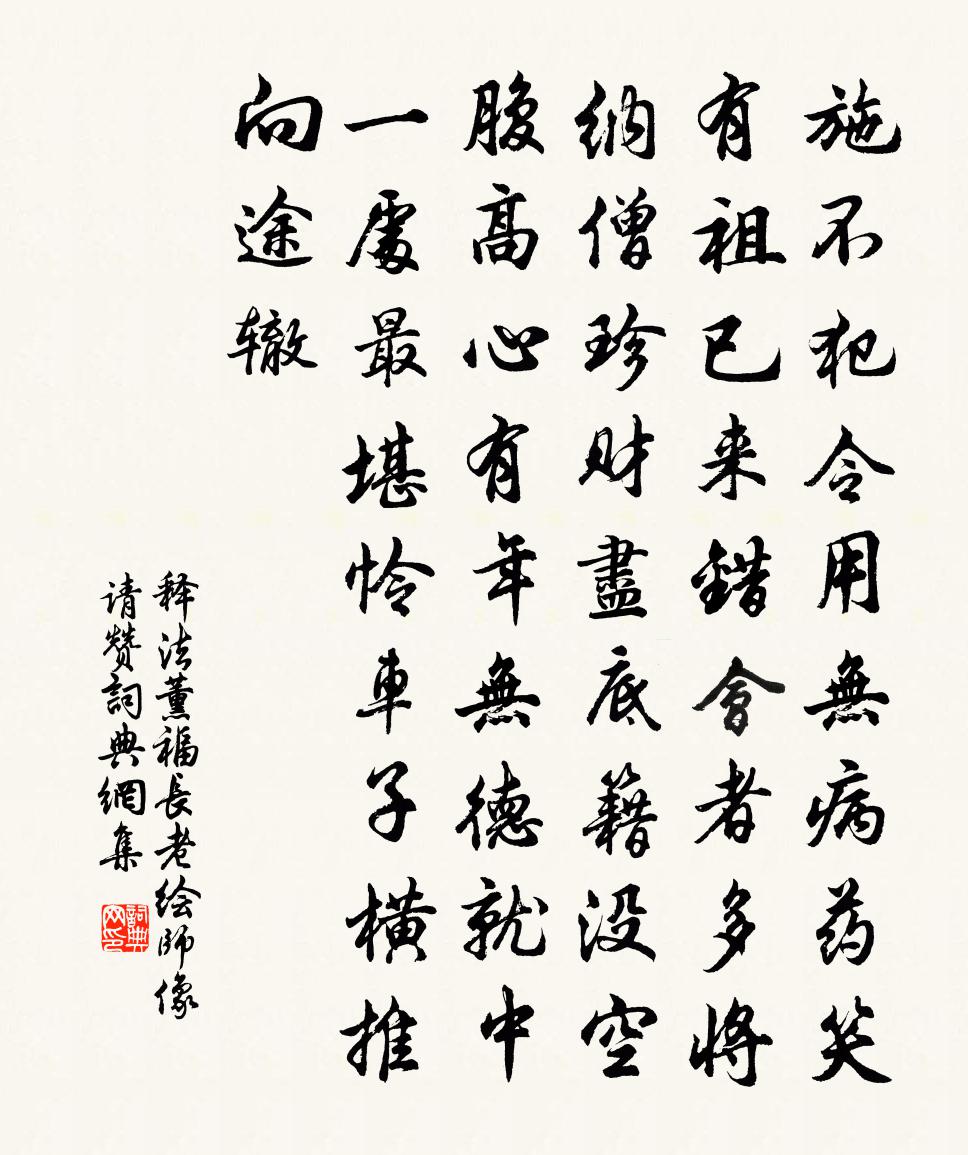 施不犯令用無病药笑
有祖已来錯會者多将
纳僧珍财盡底籍没空
腹高心有年無德就中
一處最堪怜車子横推
向途辙
释法薰福長老绘師像
请赞詞典網集
詞典
网印